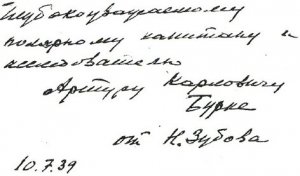 Глубокоуважаемому
полярному капитану и
исследователю
Артуру Карловичу
Бурке
от Н. Зубова
10.7.39